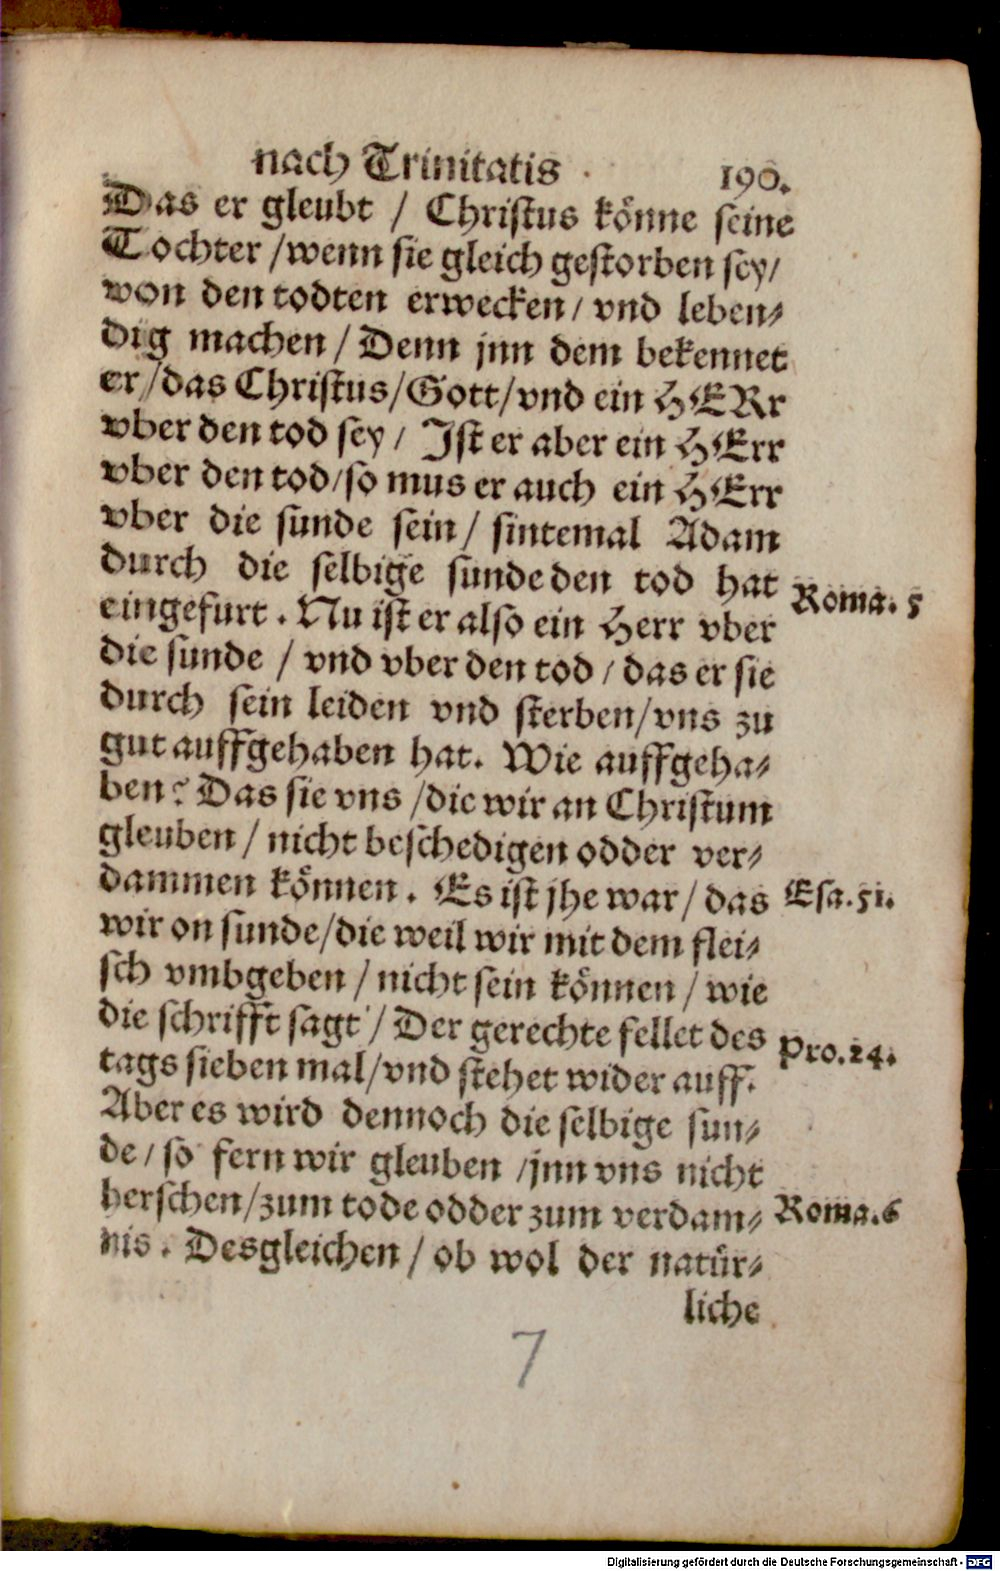 nach Trinitatis 190.
Das er gleubt / Christus könne seine
Tochter / wenn sie gleich gestorben sey/
von den todten erwecken / vnd leben⸗
dig machen / Denn jnn dem bekennet
er / das Christus / Gott / vnd ein HERr
vber den tod sey / Ist er aber ein HErr
vber den tod / so mus er auch ein HErr
vber die sunde sein / sintemal Adam
durch die selbige sunde den tod hat
Roma. 5
eingefurt. Nu ist er also ein Herr vber
die sunde / vnd vber den tod / das er sie
durch sein leiden vnd sterben / vns zu
gut auffgehaben hat. Wie auffgeha⸗
ben? Das sie vns / die wir an Christum
gleuben / nicht beschedigen odder ver⸗
dammen können. Es ist jhe war / das
Esa. 51.
wir on sunde / die weil wir mit dem flei⸗
sch vmbgeben / nicht sein können / wie
die schrifft sagt / Der gerechte fellet des
Pro. 24.
tags sieben mal / vnd stehet wider auff.
Aber es wird dennoch die selbige sun⸗
de / so fern wir gleuben / jnn vns nicht
herschen / zum tode odder zum verdam⸗
Roma. 6
nis. Desgleichen / ob wol der natür⸗
liche
7
Digitalisierung gefördert durch die Deutsche Forschungsgemeinschaft - DFG